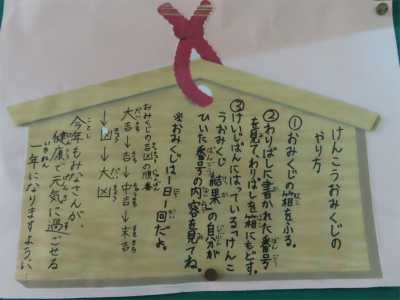 けんこうおみくじの
やり方
①おみくじの箱をふる。
②わりばしに書かれた番号
を見て、わりばしを箱にもどす。
③けいじばんにはっている「けんこ
うおみくじ 結果」の自分が
ひいた番号の内容を見てね。
※おみくじは、一日一回だよ。
おみくじの吉凶の順番
大吉→吉→中吉→末吉
→凶→大凶
今年もみなさんが、
健康で元気に過ごせる
一年になりますように…